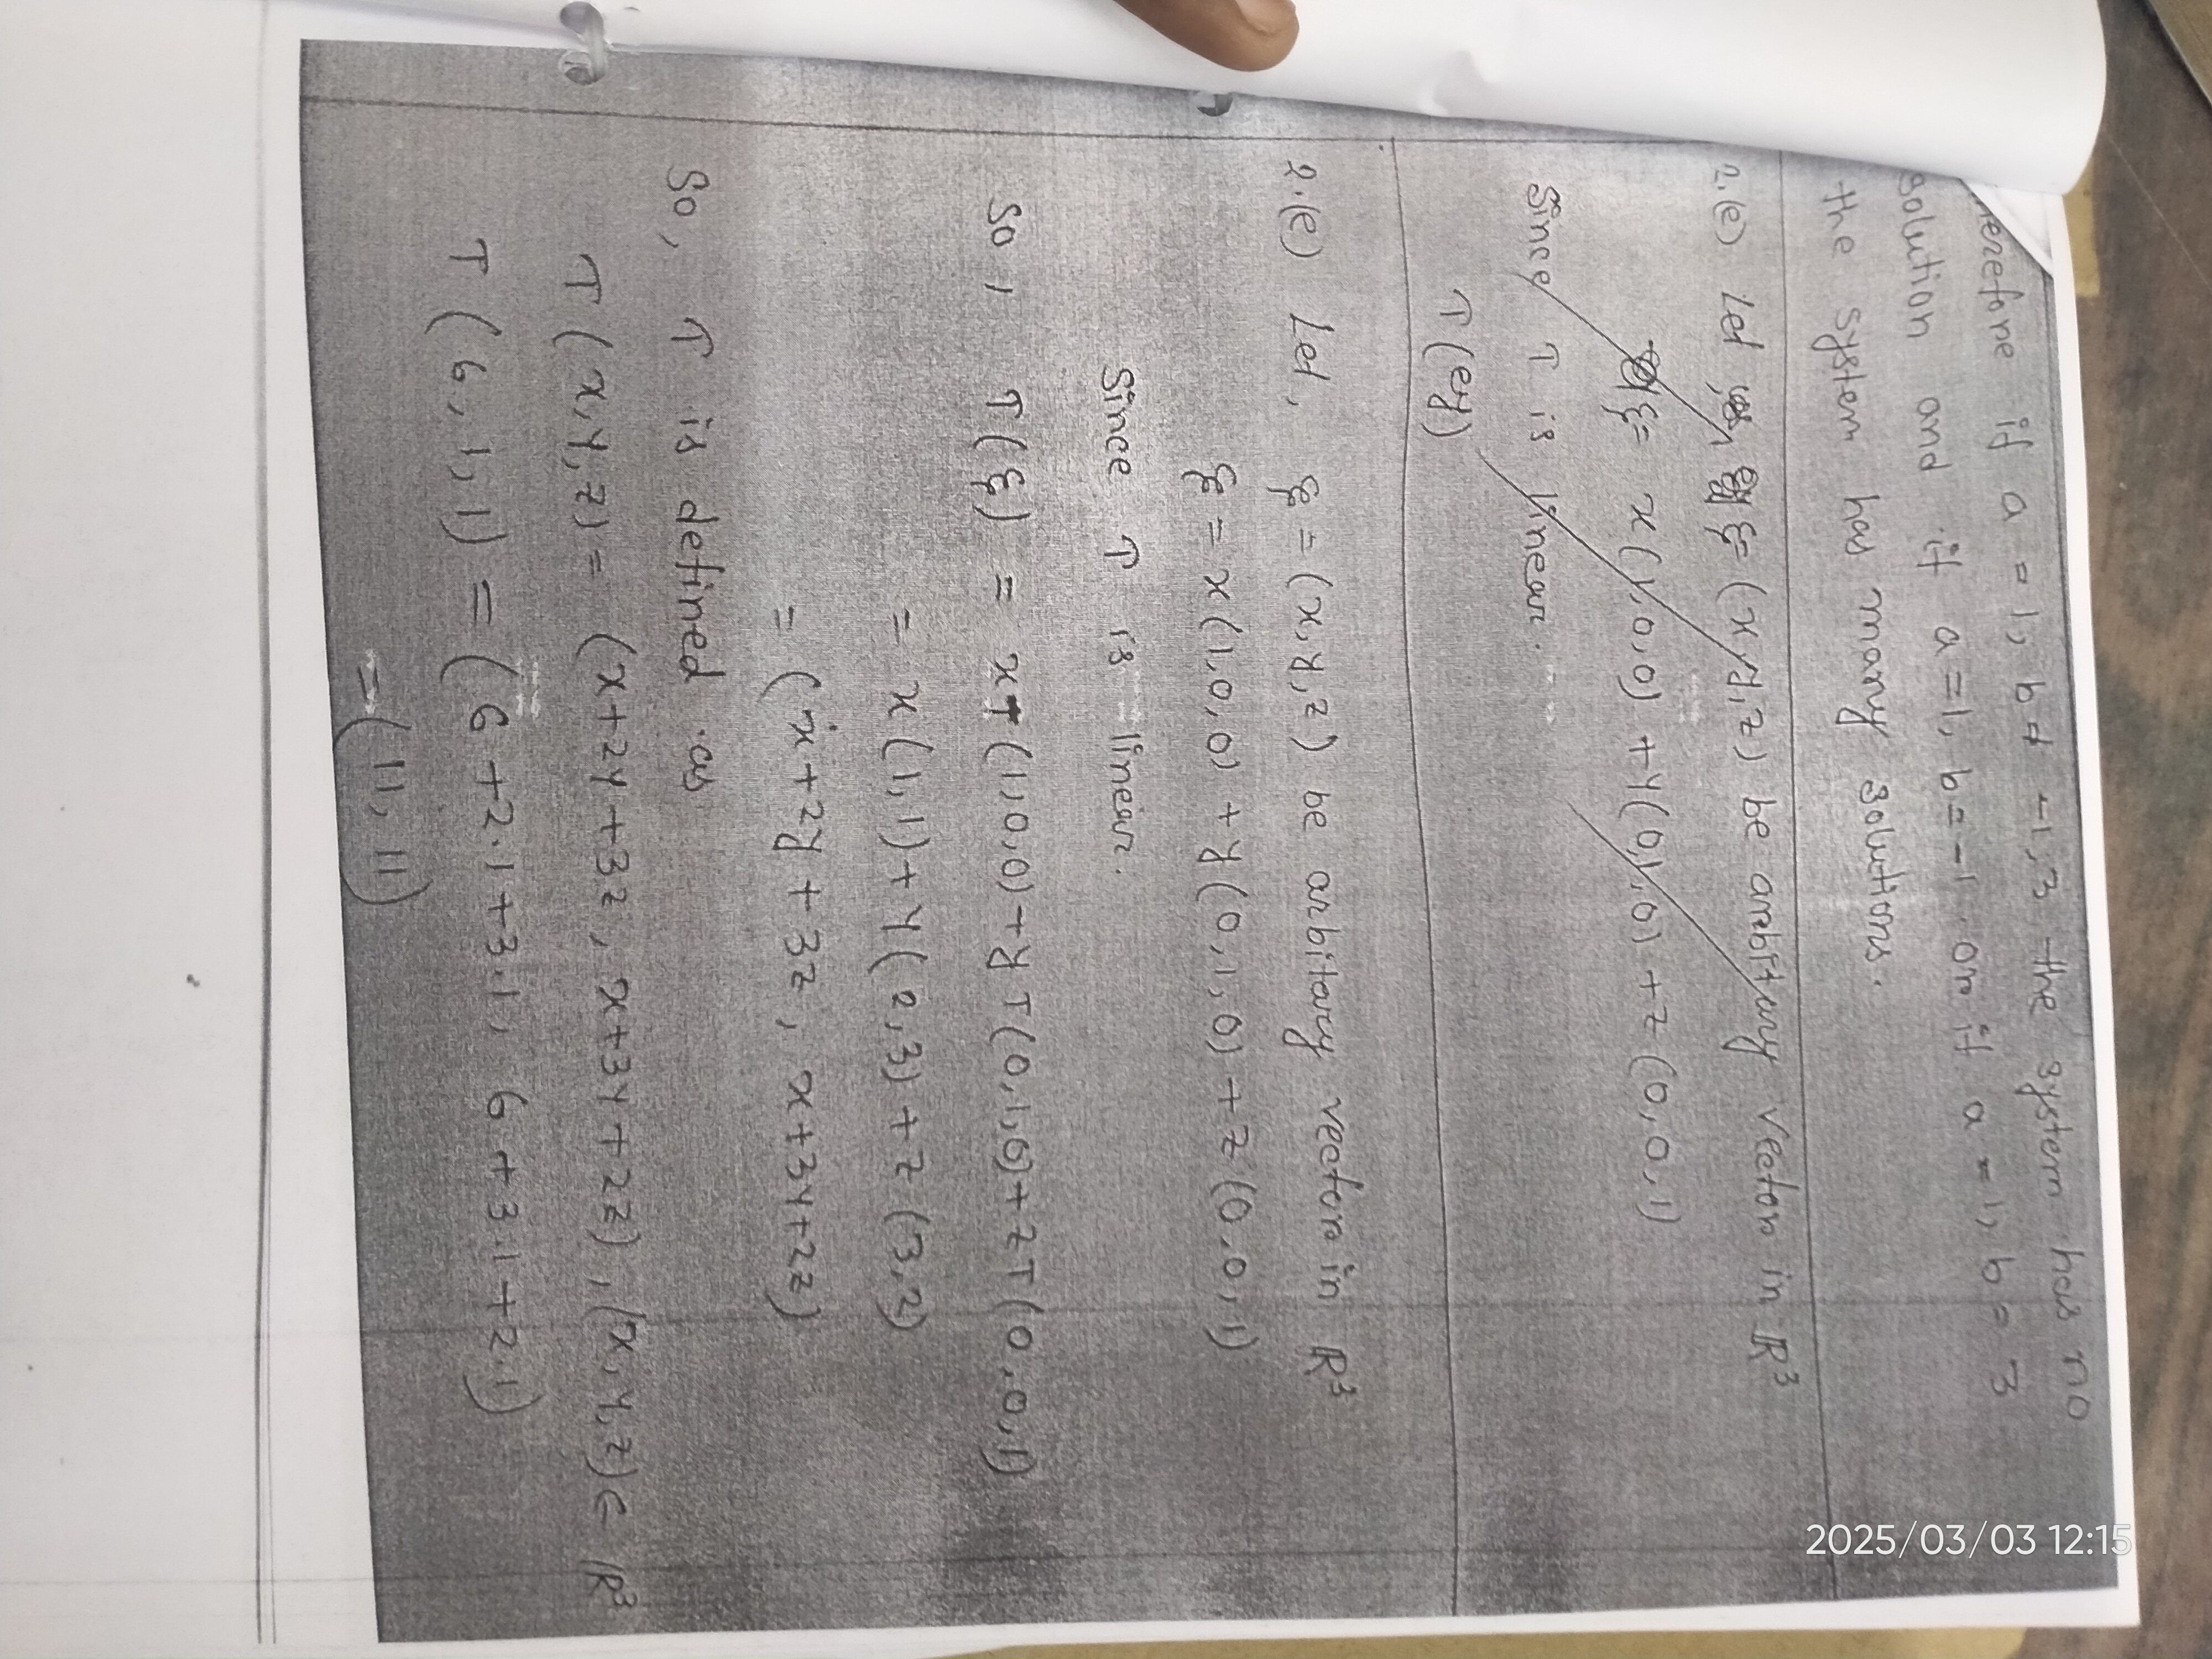 2025/03/03 12:15
erefore if a = 1, b ≠ -1, 3 the system has no
solution and if a = 1, b = -1 or if a = 1, b = 3
the system has many solutions.
2.(e) Let ξ = (x, y, z) be arbitary vector in ℝ³
ξ = x(1,0,0) + y(0,1,0) + z(0,0,1)
Since T is linear.
T(ey)
2.(e) Let, ξ = (x, y, z) be arbitary vector in ℝ³
ξ = x(1,0,0) + y(0,1,0) + z(0,0,1)
Since T is linear.
So, T(ξ) = xT(1,0,0) + yT(0,1,0) + zT(0,0,1)
= x(1,1) + y(2,3) + z(3,2)
= (x+2y+3z, x+3y+2z)
So, T is defined as
T(x,y,z) = (x+2y+3z, x+3y+2z), (x,y,z) ∈ ℝ³
T(6,1,1) = (6+2.1+3.1, 6+3.1+2.1)
= (11, 11)